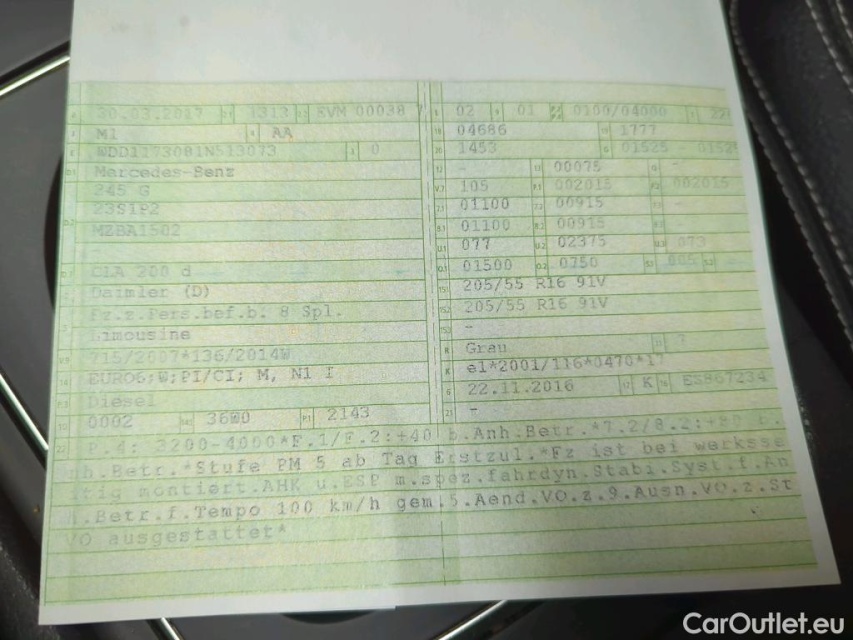 20.03.2017 1313 SVM 00038 7
M1 AA
WDD1173081N513073 0
Mercedes-Benz
245 G
23S1P2
MZBA1502
-
CLA 200 d
Daimler (D)
Fz.z.Pers.bef.b. 8 Spl.
Limousine
715/2007*136/2014W
EURO6;W;PI/CI; M, N1 I
Diesel
0002 3600 2143
02 01 0100/04000
04686 1777
1453 01525
- 00075 -
105 002015 002015
01100 00915
01100 00915
077 02375 073
01500 0750
205/55 R16 91V
205/55 R16 91V
-
Grau 7
e1*2001/116*0470*17
22.11.2016 K ES867234
-
P.4: 3200-4000*F.1/F.2:+40 b.Anh.Betr.*7.2/8.2:+80 b.
nh.Betr.*Stufe PM 5 ab Tag Erstzul.*Fz ist bei werksse
itig montiert.AHK u.ESP m.spez.fahrdyn.Stabi.Syst.f.An
h.Betr.f.Tempo 100 km/h gem.5.Aend.VO.z.9.Ausn.VO.z.St
VO ausgestattet*
CarOutlet.eu